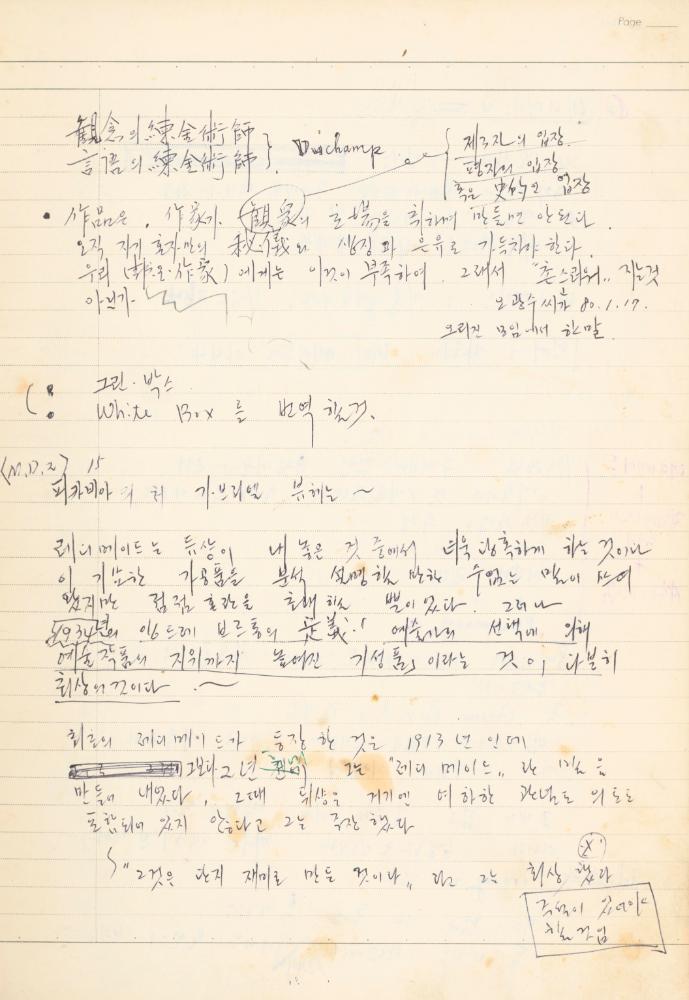 Page
観念의 練金術師
言語의 練金術師 } Duchamp { 제3자의 입장.
평자의 입장
혹은 史的인 입장
• 作品은, 作家가 観衆의 호場을 취하며 만들면 안된다.
오직 자기 혼자만의 秘儀와 상징과 은유로 가득차야 한다.
우리 (韓国作家) 에게는 이것이 부족하여. 그래서 "촌스러워" 지는것
아닌가.
오광수씨가 80. 1. 17.
오리진 모임에서 한말.
그린·박스
White Box 를 번역할것.
15
피카비아의 처 가브리엘 뷰페는 ~
레디메이드는 듀상이 내놓은 것 중에서 더욱 당혹하게 하는 것이다
이 기묘한 가공품을 분석 설명할 만한 수없는 말이 쓰여
왔지만 점점 혼란을 초래할 뿐이었다. 그러나
1934년의 앙드레 브르통의 定義「예술가의 선택에 의해
예술작품의 지위까지 높여진 기성품」이라는 것이 다분히
회상의 것이다. ~
최초의 레디메이드가 등장한 것은 1913년 인데
그보다 2년 그는 "레디메이드" 란 말을
만들어 내었다. 그때 뒤샹은 거기엔 여하한 관념도 의도도
포함되어 있지 않는다고 그는 주장했다
"그것은 단지 재미로 만든 것이다" 라고 그는 회상했다
주석이 있어야
할것임